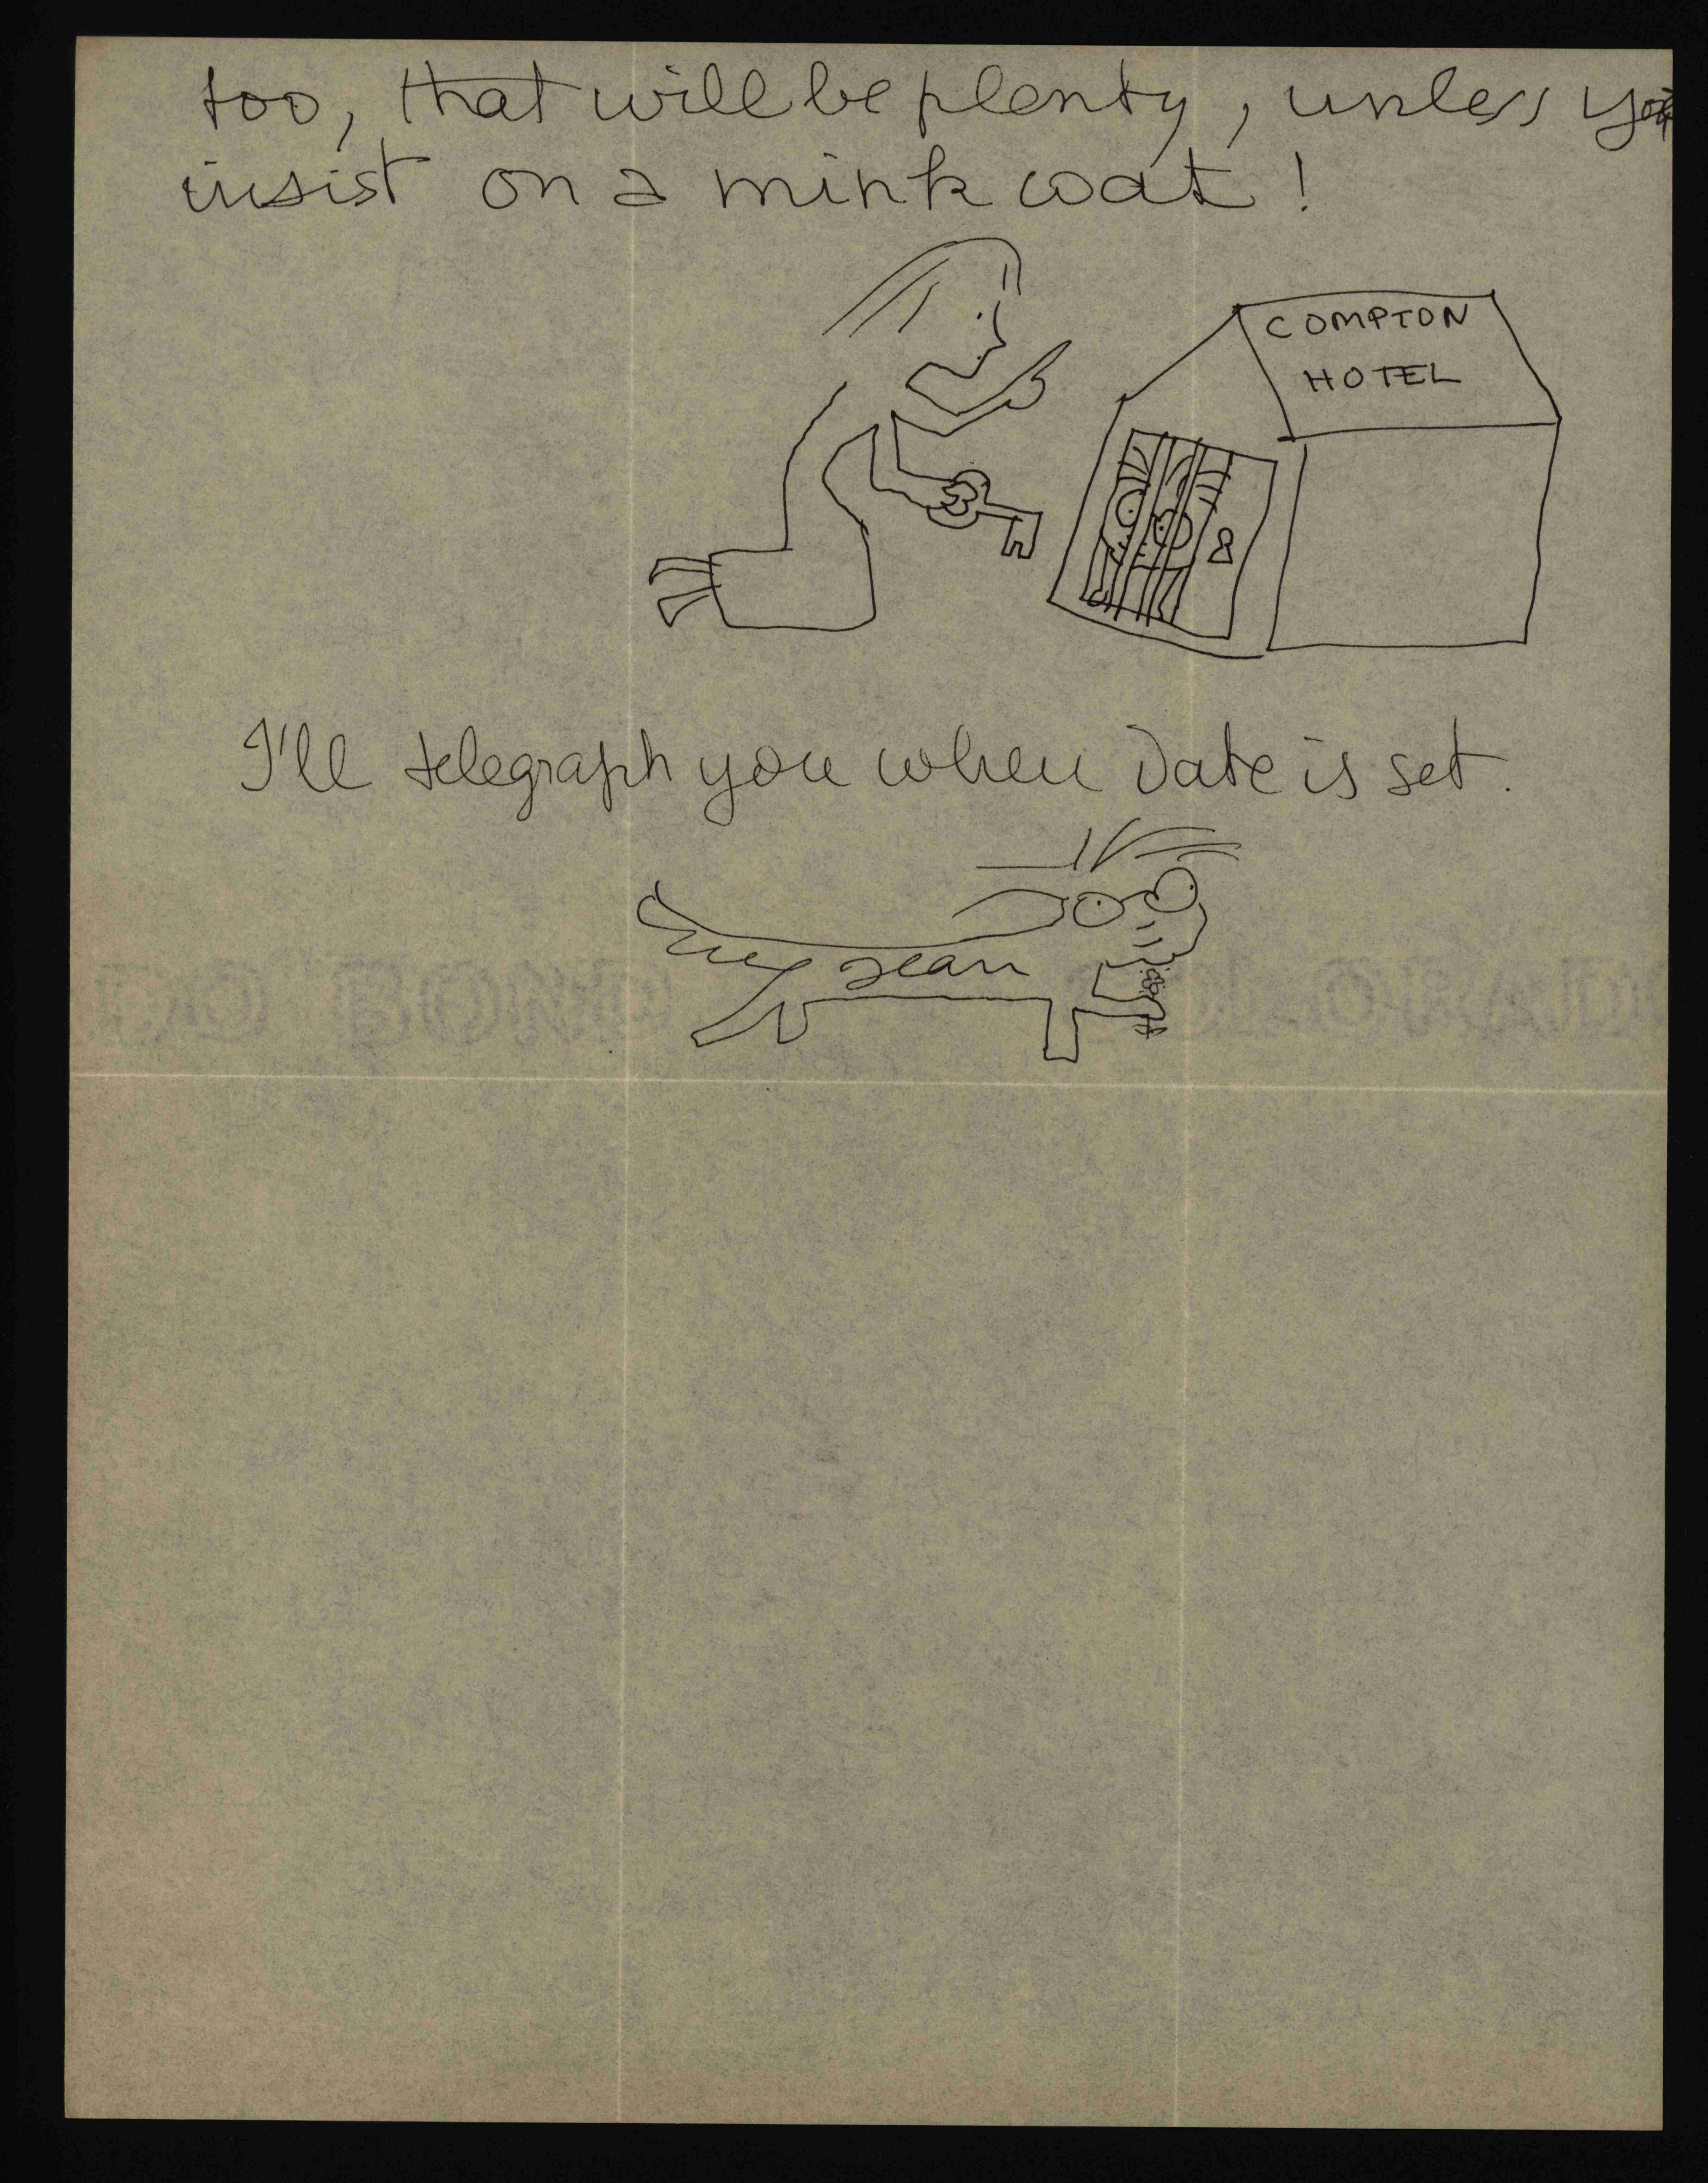 too, that will be plenty, unless you
insist on a mink coat!
COMPTON
HOTEL
I'll telegraph you when Date is set.
Jean